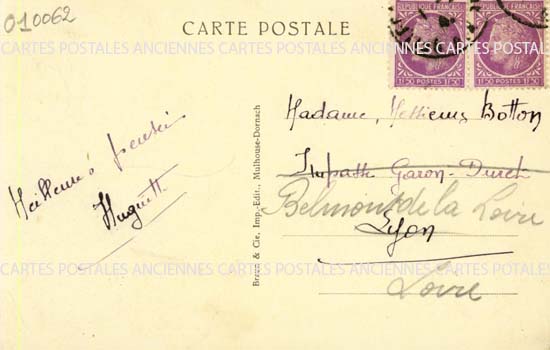 010062
CARTE POSTALE
RÉPUBLIQUE FRANÇAISE
1F50 POSTES 1F50
RÉPUBLIQUE FRANÇAISE
1F50 POSTES 1F50
CARTES POSTALES ANCIENNES CARTES POSTALES ANCIENNES CARTES POSTALES
Meilleures pensées
Huguette
Braun & Cie, Imp.-Edit., Mulhouse-Dornach
Madame, Messieurs Botton
Impasse
Belmont de la Loire
Lyon
Loire
CARTES POSTALES ANCIENNES CARTES POSTALES ANCIENNES CARTES POSTALES